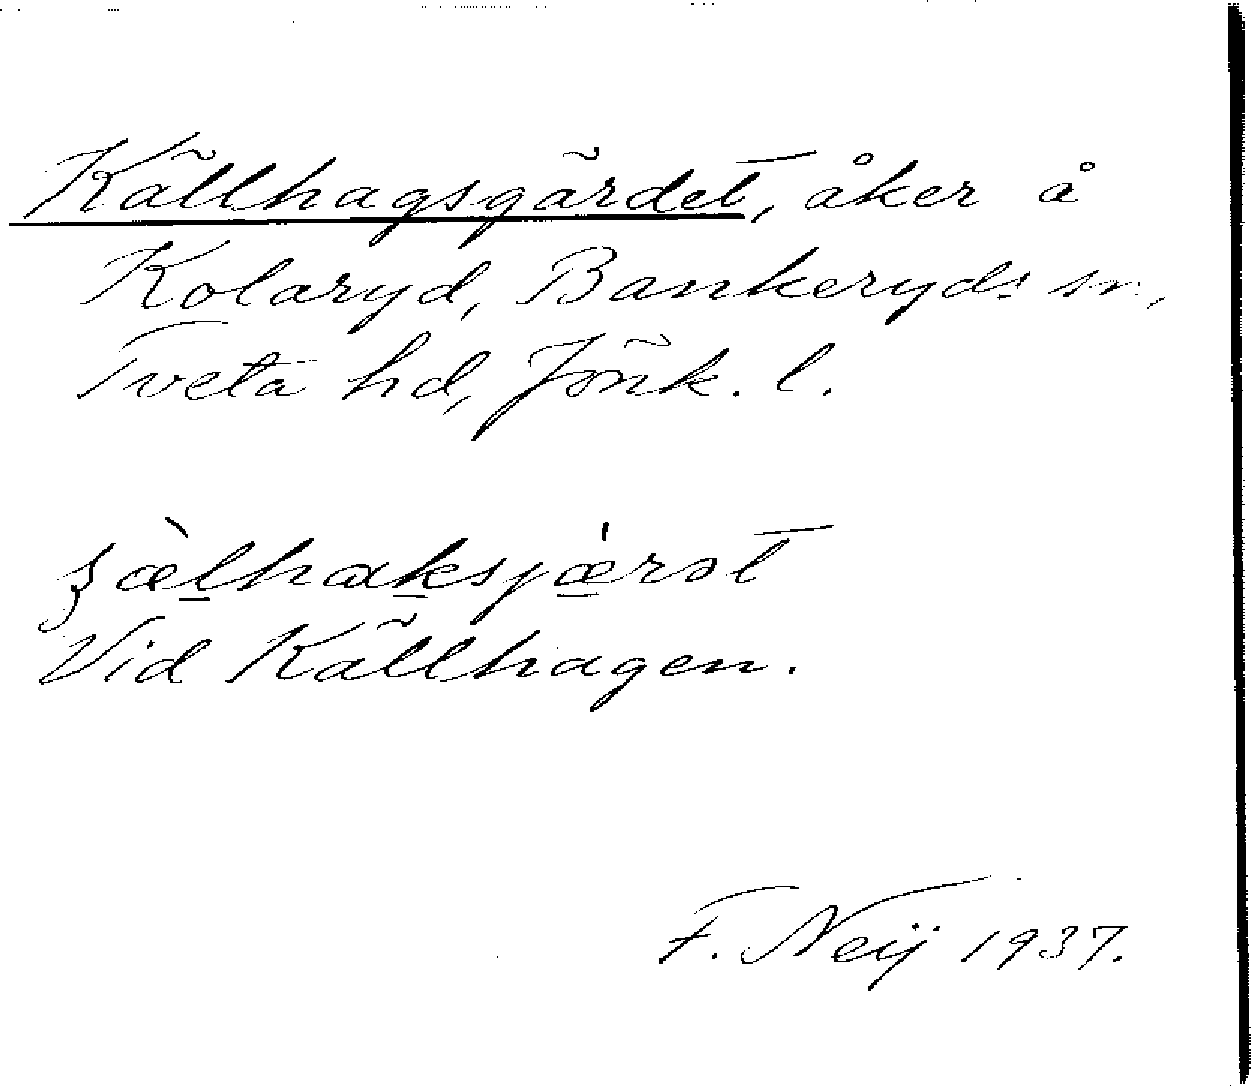 Källhagsgärdet, åker å
Kolaryd, Bankeryds sn,
Tveta hd, Jönk. l.
ʒæ̀lhaksjæ̍rət
Vid Källhagen.
F. Neij 1937.